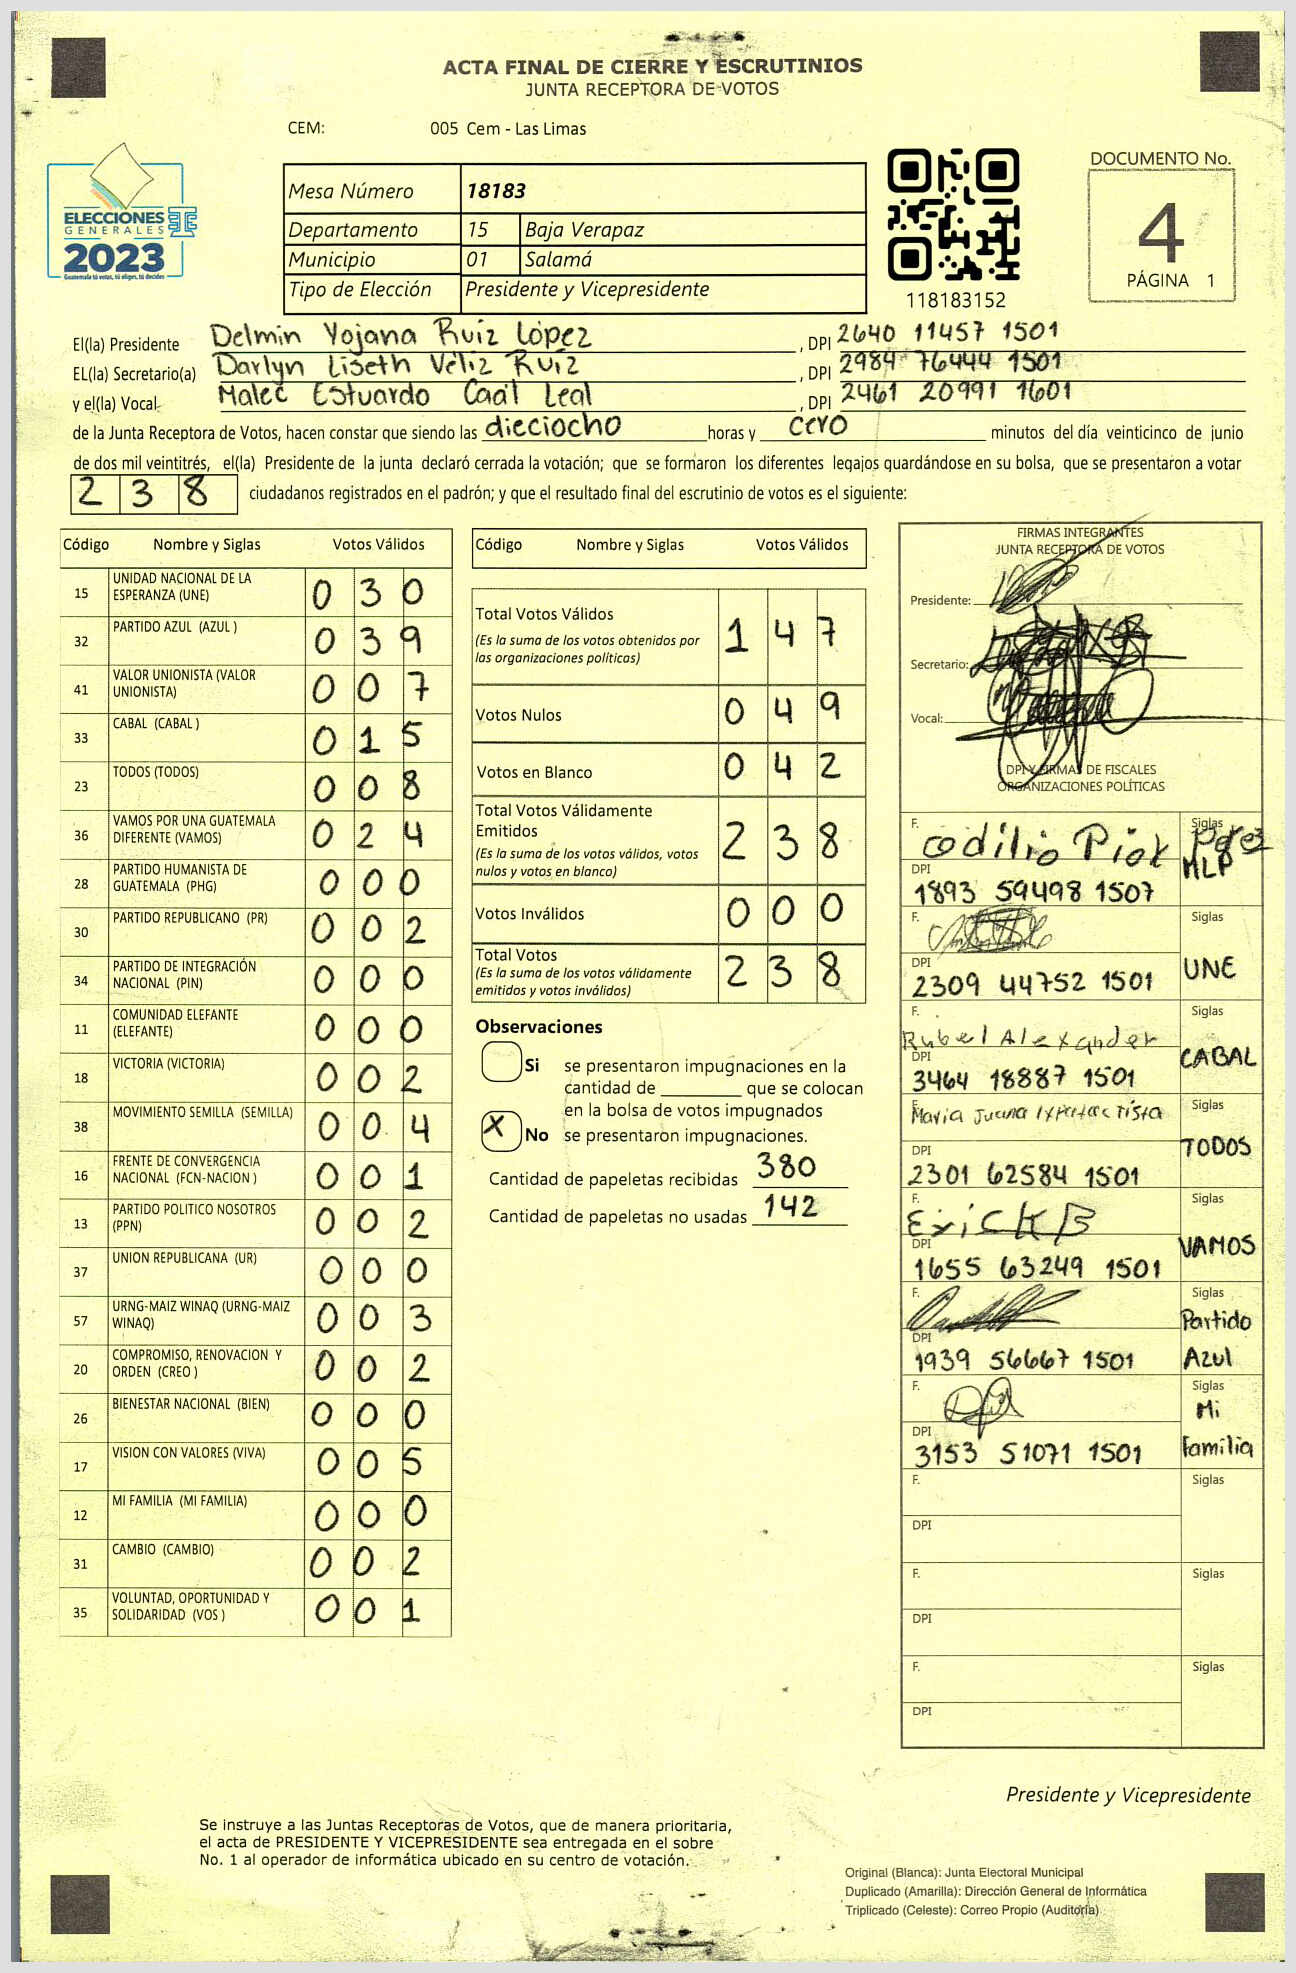 ACTA FINAL DE CIERRE Y ESCRUTINIOS
JUNTA RECEPTORA DE VOTOS
CEM: 005 Cem - Las Limas
ELECCIONES
GENERALES
2023
Guatemala tú votas, tú eliges, tú decides
Mesa Número 18183
Departamento 15 Baja Verapaz
Municipio 01 Salamá
Tipo de Elección Presidente y Vicepresidente
118183152
DOCUMENTO No.
4
PÁGINA 1
El(la) Presidente Delmin Yojana Ruíz López , DPI 2640 11457 1501
EL(la) Secretario(a) Darlyn Liseth Véliz Ruíz , DPI 2984 76444 1501
y el(la) Vocal Malec Estuardo Caal Leal , DPI 2461 20991 1601
de la Junta Receptora de Votos, hacen constar que siendo las dieciocho horas y cero minutos del día veinticinco de junio
de dos mil veintitrés, el(la) Presidente de la junta declaró cerrada la votación; que se formaron los diferentes legajos guardándose en su bolsa, que se presentaron a votar
238 ciudadanos registrados en el padrón; y que el resultado final del escrutinio de votos es el siguiente:
Código Nombre y Siglas Votos Válidos
15 UNIDAD NACIONAL DE LA ESPERANZA (UNE) 030
32 PARTIDO AZUL (AZUL ) 039
41 VALOR UNIONISTA (VALOR UNIONISTA) 007
33 CABAL (CABAL ) 015
23 TODOS (TODOS) 008
36 VAMOS POR UNA GUATEMALA DIFERENTE (VAMOS) 024
28 PARTIDO HUMANISTA DE GUATEMALA (PHG) 000
30 PARTIDO REPUBLICANO (PR) 002
34 PARTIDO DE INTEGRACIÓN NACIONAL (PIN) 000
11 COMUNIDAD ELEFANTE (ELEFANTE) 000
18 VICTORIA (VICTORIA) 002
38 MOVIMIENTO SEMILLA (SEMILLA) 004
16 FRENTE DE CONVERGENCIA NACIONAL (FCN-NACION ) 001
13 PARTIDO POLITICO NOSOTROS (PPN) 002
37 UNION REPUBLICANA (UR) 000
57 URNG-MAIZ WINAQ (URNG-MAIZ WINAQ) 003
20 COMPROMISO, RENOVACION Y ORDEN (CREO ) 002
26 BIENESTAR NACIONAL (BIEN) 000
17 VISION CON VALORES (VIVA) 005
12 MI FAMILIA (MI FAMILIA) 000
31 CAMBIO (CAMBIO) 002
35 VOLUNTAD, OPORTUNIDAD Y SOLIDARIDAD (VOS ) 001
Código Nombre y Siglas Votos Válidos
Total Votos Válidos 147
(Es la suma de los votos obtenidos por
las organizaciones políticas)
Votos Nulos 049
Votos en Blanco 042
Total Votos Válidamente
Emitidos 238
(Es la suma de los votos válidos, votos
nulos y votos en blanco)
Votos Inválidos 000
Total Votos 238
(Es la suma de los votos válidamente
emitidos y votos inválidos)
Observaciones
Si se presentaron impugnaciones en la
cantidad de ________ que se colocan
en la bolsa de votos impugnados
X No se presentaron impugnaciones.
Cantidad de papeletas recibidas 380
Cantidad de papeletas no usadas 142
FIRMAS INTEGRANTES
JUNTA RECEPTORA DE VOTOS
Presidente:
Secretario:
Vocal:
DPI Y FIRMAS DE FISCALES
ORGANIZACIONES POLÍTICAS
F. Siglas
MLP
DPI
1893 59498 1507
F. Siglas
UNE
DPI
2309 44752 1501
F. Siglas
Rubel Alexander
CABAL
DPI
3464 18887 1501
F. Siglas
Maria Juana
TODOS
DPI
2301 62584 1501
F. Siglas
Erick B
VAMOS
DPI
1655 63249 1501
F. Siglas
Partido
Azul
DPI
1939 56667 1501
F. Siglas
Mi
Familia
DPI
3153 51071 1501
F. Siglas
DPI
F. Siglas
DPI
F. Siglas
DPI
Presidente y Vicepresidente
Se instruye a las Juntas Receptoras de Votos, que de manera prioritaria,
el acta de PRESIDENTE Y VICEPRESIDENTE sea entregada en el sobre
No. 1 al operador de informática ubicado en su centro de votación.
Original (Blanca): Junta Electoral Municipal
Duplicado (Amarilla): Dirección General de Informática
Triplicado (Celeste): Correo Propio (Auditoría)